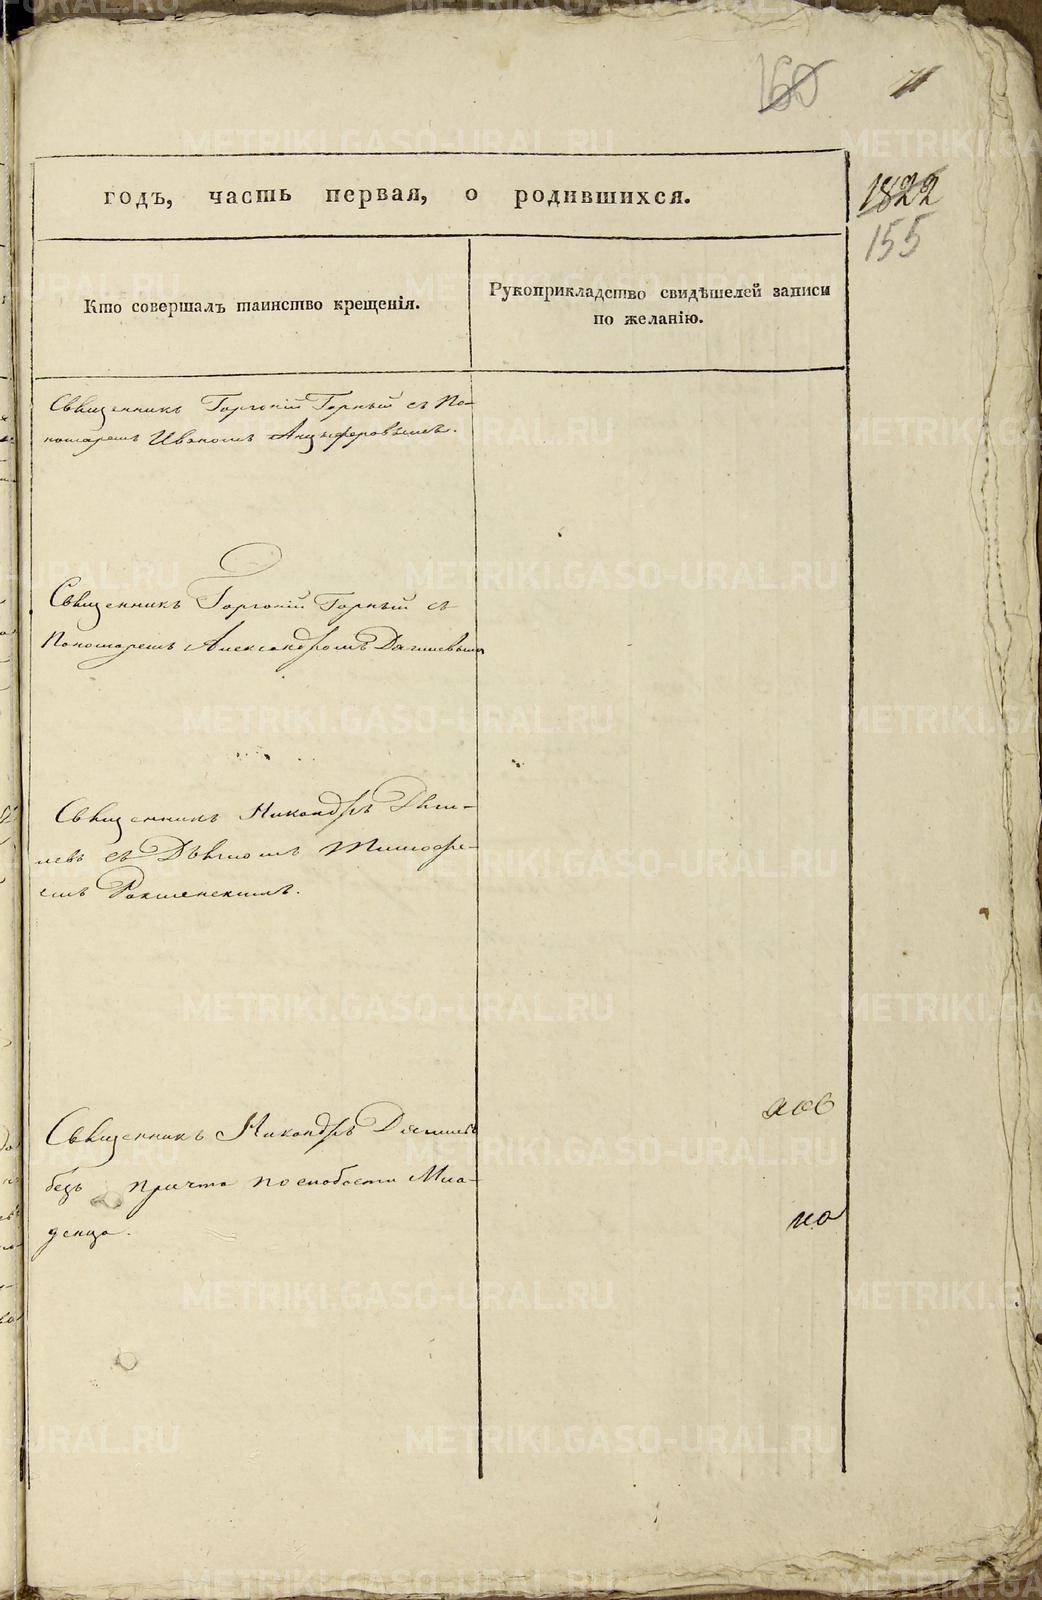 160
71
годъ, часть первая, о родившихся.
1822
155
Кто совершалъ таинство крещенія.
Рукоприкладство свидѣтелей записи
по желанію.
Священникъ Горгоній Горный съ По-
номаремъ Иваномъ Анцыферовымъ.
Священникъ Горгоній Горный съ
Пономаремъ Александромъ Дягилевымъ
Священникъ Никандръ Дяги-
левъ съ Дьячкомъ Тимофе-
емъ
Священникъ Никандръ Дягилевъ
безъ причта по слабости Мла-
денца.
но
METRIKI.GASO-URAL.RU